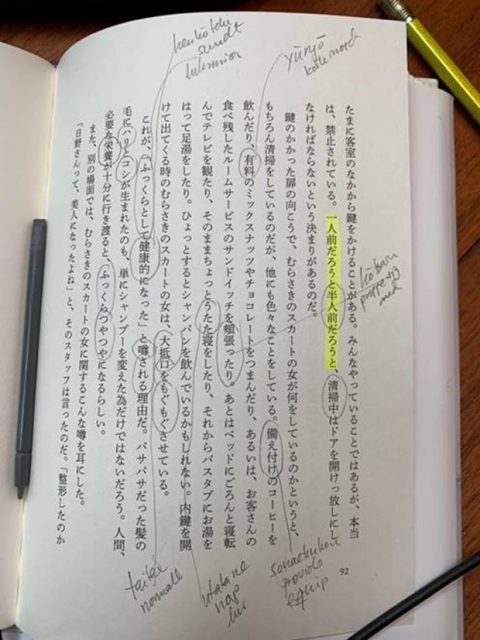 たまに客室のなかから鍵をかけることがある。みんなやっていることではあるが、本当
は、禁止されている。一人前だろうと半人前だろうと、清掃中はドアを開けっ放しにし
なければならないという決まりがあるのだ。
鍵のかかった扉の向こうで、むらさきのスカートの女が何をしているのかというと、
もちろん清掃をしているのだが、他にも色々なことをしている。備え付けのコーヒーを
飲んだり、有料のミックスナッツやチョコレートをつまんだり、あるいは、お客さんの
食べ残したルームサービスのサンドイッチを頬張ったり。あとはベッドにごろんと寝転
んでテレビを観たり、そのままちょっとうたた寝をしたり、それからバスタブにお湯を
はって足湯をしたり。ひょっとするとシャンパンを飲んでいるかもしれない。内鍵を開
けて出てくる時のむらさきのスカートの女は、大抵口をもぐもぐさせている。
これが、「ふっくらとして健康的になった」と噂される理由だ。パサパサだった髪の
毛にハリとコシが生まれたのも、単にシャンプーを変えた為だけではないだろう。人間、
必要な栄養が十分に行き渡ると、ふっくらつやつやになるらしい。
また、別の場面では、むらさきのスカートの女に関するこんな噂を耳にした。
「日野さんって、美人になったよね」と、そのスタッフは言ったのだ。「整形したのか
92
sundt
yūryō
utatane
nap
lur
provide
equip